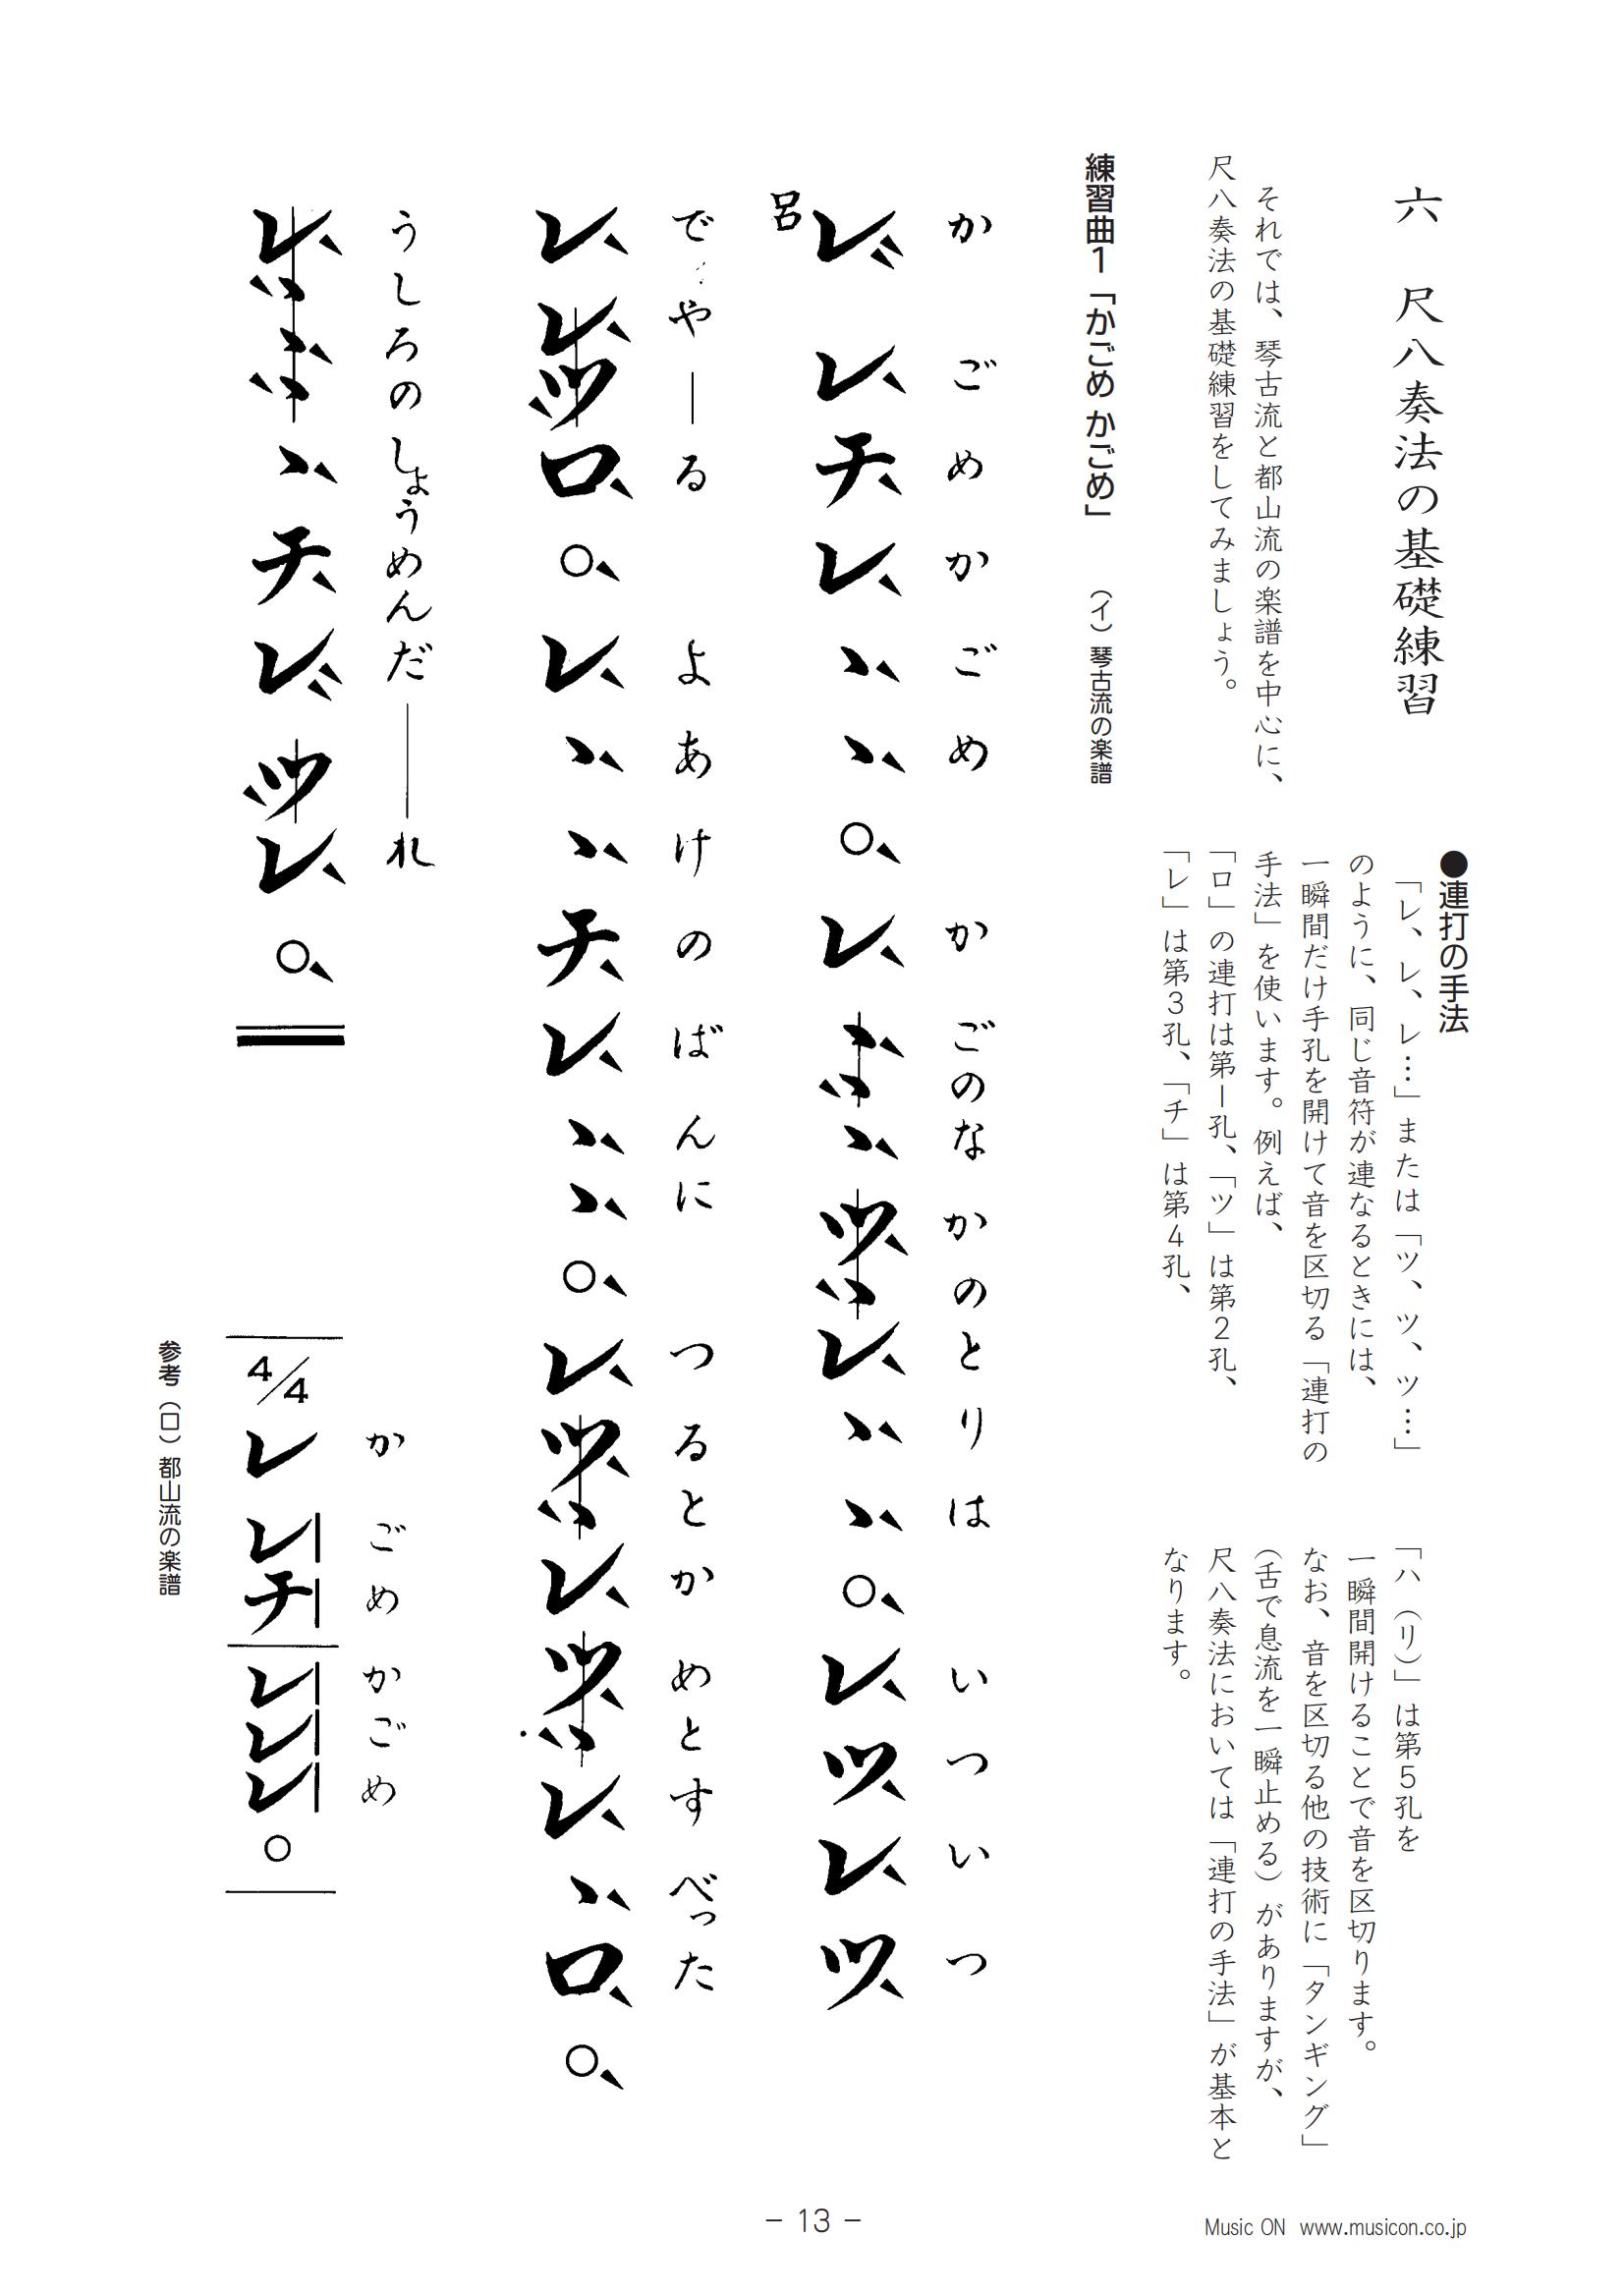 六 尺八奏法の基礎練習
それでは、琴古流と都山流の楽譜を中心に、
尺八奏法の基礎練習をしてみましょう。
●連打の手法
「レ、レ、レ…」または「ツ、ツ、ツ…」
のように、同じ音符が連なるときには、
一瞬間だけ手孔を開けて音を区切る「連打の
手法」を使います。例えば、
「ロ」の連打は第1孔、「ツ」は第2孔、
「レ」は第3孔、「チ」は第4孔、
「ハ（リ）」は第5孔を
一瞬間開けることで音を区切ります。
なお、音を区切る他の技術に「タンギング」
（舌で息流を一瞬止める）がありますが、
尺八奏法においては「連打の手法」が基本と
なります。
練習曲1「かごめ かごめ」 （イ）琴古流の楽譜
かごめかごめ かごのなかのとりは いついつ
呂
レ、、レ、チ、レ、ヽ、ヽ、○、レ、ヽ、ヽ、ヽ、ツ、ヽ、レ、ヽ、ヽ、○、レ、ツ、レ、ツ、
でやーる よあけのばんに つるとかめとすべった
レ、レ、ツ、ロ、○、レ、ヽ、ヽ、チ、レ、ヽ、ヽ、○、レ、ツ、ヽ、レ、ツ、ヽ、レ、ヽ、ロ、○、
うしろのしょうめんだーれ
レ、ヽ、ヽ、ヽ、ヽ、チ、レ、、ツ、レ、○、
かごめかごめ
4/4 レレチレレレ○
参考（ロ）都山流の楽譜
– 13 –
Music ON www.musicon.co.jp